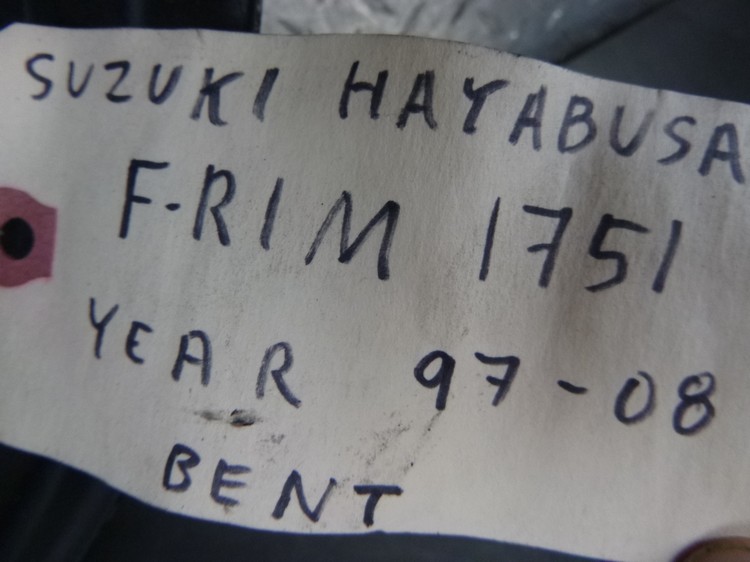 SUZUKI HAYABUSA
F-RIM 1751
YEAR 97-08
BENT